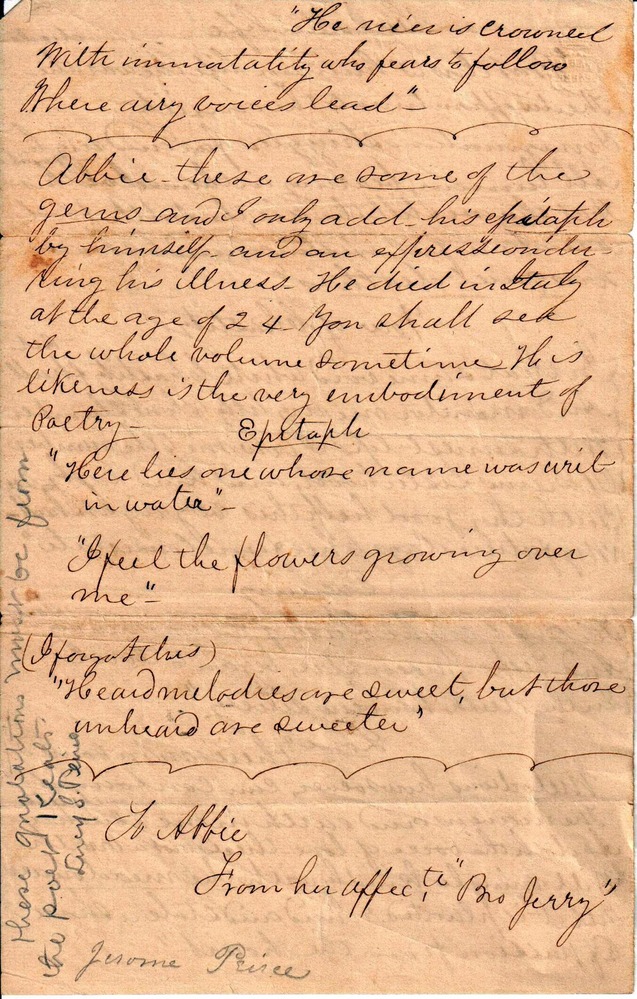 "He ne'er is crowned
With immortality who fears to follow
Where airy voices lead"-
Abbie - these are some of the
gems - and I only add - his epitaph
by himself - and an expression du-
ring his illness - He died in Italy
at the age of 24 - You shall see
the whole volume sometime - His
likeness is the very embodiment of
Poetry -
Epitaph
"Here lies one whose name was writ
in water" -
"I feel the flowers growing over
me" -
(I forgot this)
"Heard melodies are sweet, but those
unheard are sweeter"
To Abbie
From her affec.te "Bro Jerry"
Jerome Peirce
These quotations must be from
the poet Keats.
Lucy S. Peirce